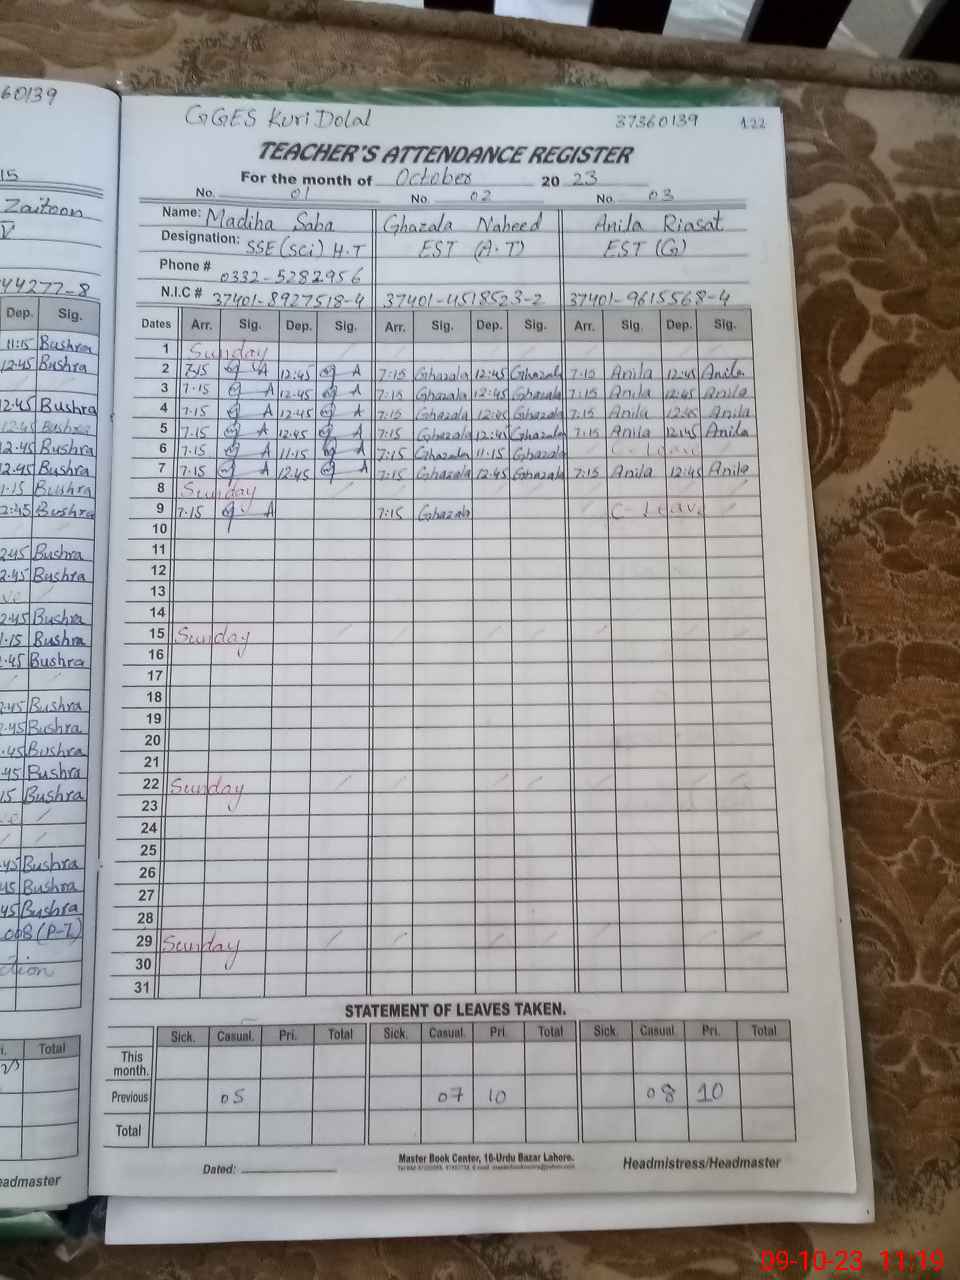 60139
15
Zaitoon
V
44277-8
Dep. Sig.
11:15 Bushra
12:45 Bushra
12:45 Bushra
12:45 Bushra
2:45 Bushra
2:45 Bushra
1:15 Bushra
2:45 Bushra
2:45 Bushra
2:45 Bushra
2:45 Bushra
1:15 Bushra
:45 Bushra
2:45 Bushra
2:45 Bushra
:45 Bushra
:45 Bushra
15 Bushra
:45 Bushra
45 Bushra
45 Bushra
Total
eadmaster
GGES Kuri Dolal 37360139 122
TEACHER'S ATTENDANCE REGISTER
For the month of October 20 23
No. 01 No. 02 No. 03
Name: Madiha Saba Ghazala Naheed Anila Riasat
Designation: SSE (Sci) H.T EST (A.T) EST (G)
Phone # 0332-5282956
N.I.C # 37401-8927518-4 37401-4518523-2 37401-9615568-4
Dates Arr. Sig. Dep. Sig. Arr. Sig. Dep. Sig. Arr. Sig. Dep. Sig.
1 Sunday
2 7:15 12:45 7:15 Ghazala 12:45 Ghazala 7:15 Anila 12:45 Anila
3 7:15 12:45 7:15 Ghazala 12:45 Ghazala 7:15 Anila 12:45 Anila
4 7:15 12:45 7:15 Ghazala 12:45 Ghazala 7:15 Anila 12:45 Anila
5 7:15 12:45 7:15 Ghazala 12:45 Ghazala 7:15 Anila 12:45 Anila
6 7:15 11:15 7:15 Ghazala 11:15 Ghazala C-Leave
7 7:15 12:45 7:15 Ghazala 12:45 Ghazala 7:15 Anila 12:45 Anila
8 Sunday
9 7:15 7:15 Ghazala C-Leave
10
11
12
13
14
15 Sunday
16
17
18
19
20
21
22 Sunday
23
24
25
26
27
28
29 Sunday
30
31
STATEMENT OF LEAVES TAKEN.
Sick. Casual. Pri. Total Sick. Casual. Pri. Total Sick. Casual. Pri. Total
This month.
Previous 05 07 10 08 10
Total
Dated: Master Book Center, 16-Urdu Bazar Lahore. Headmistress/Headmaster
09-10-23 11:19